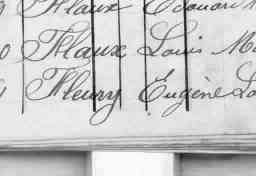 Flaux Edouard
Flaux Louis M
Fleury Eugène L